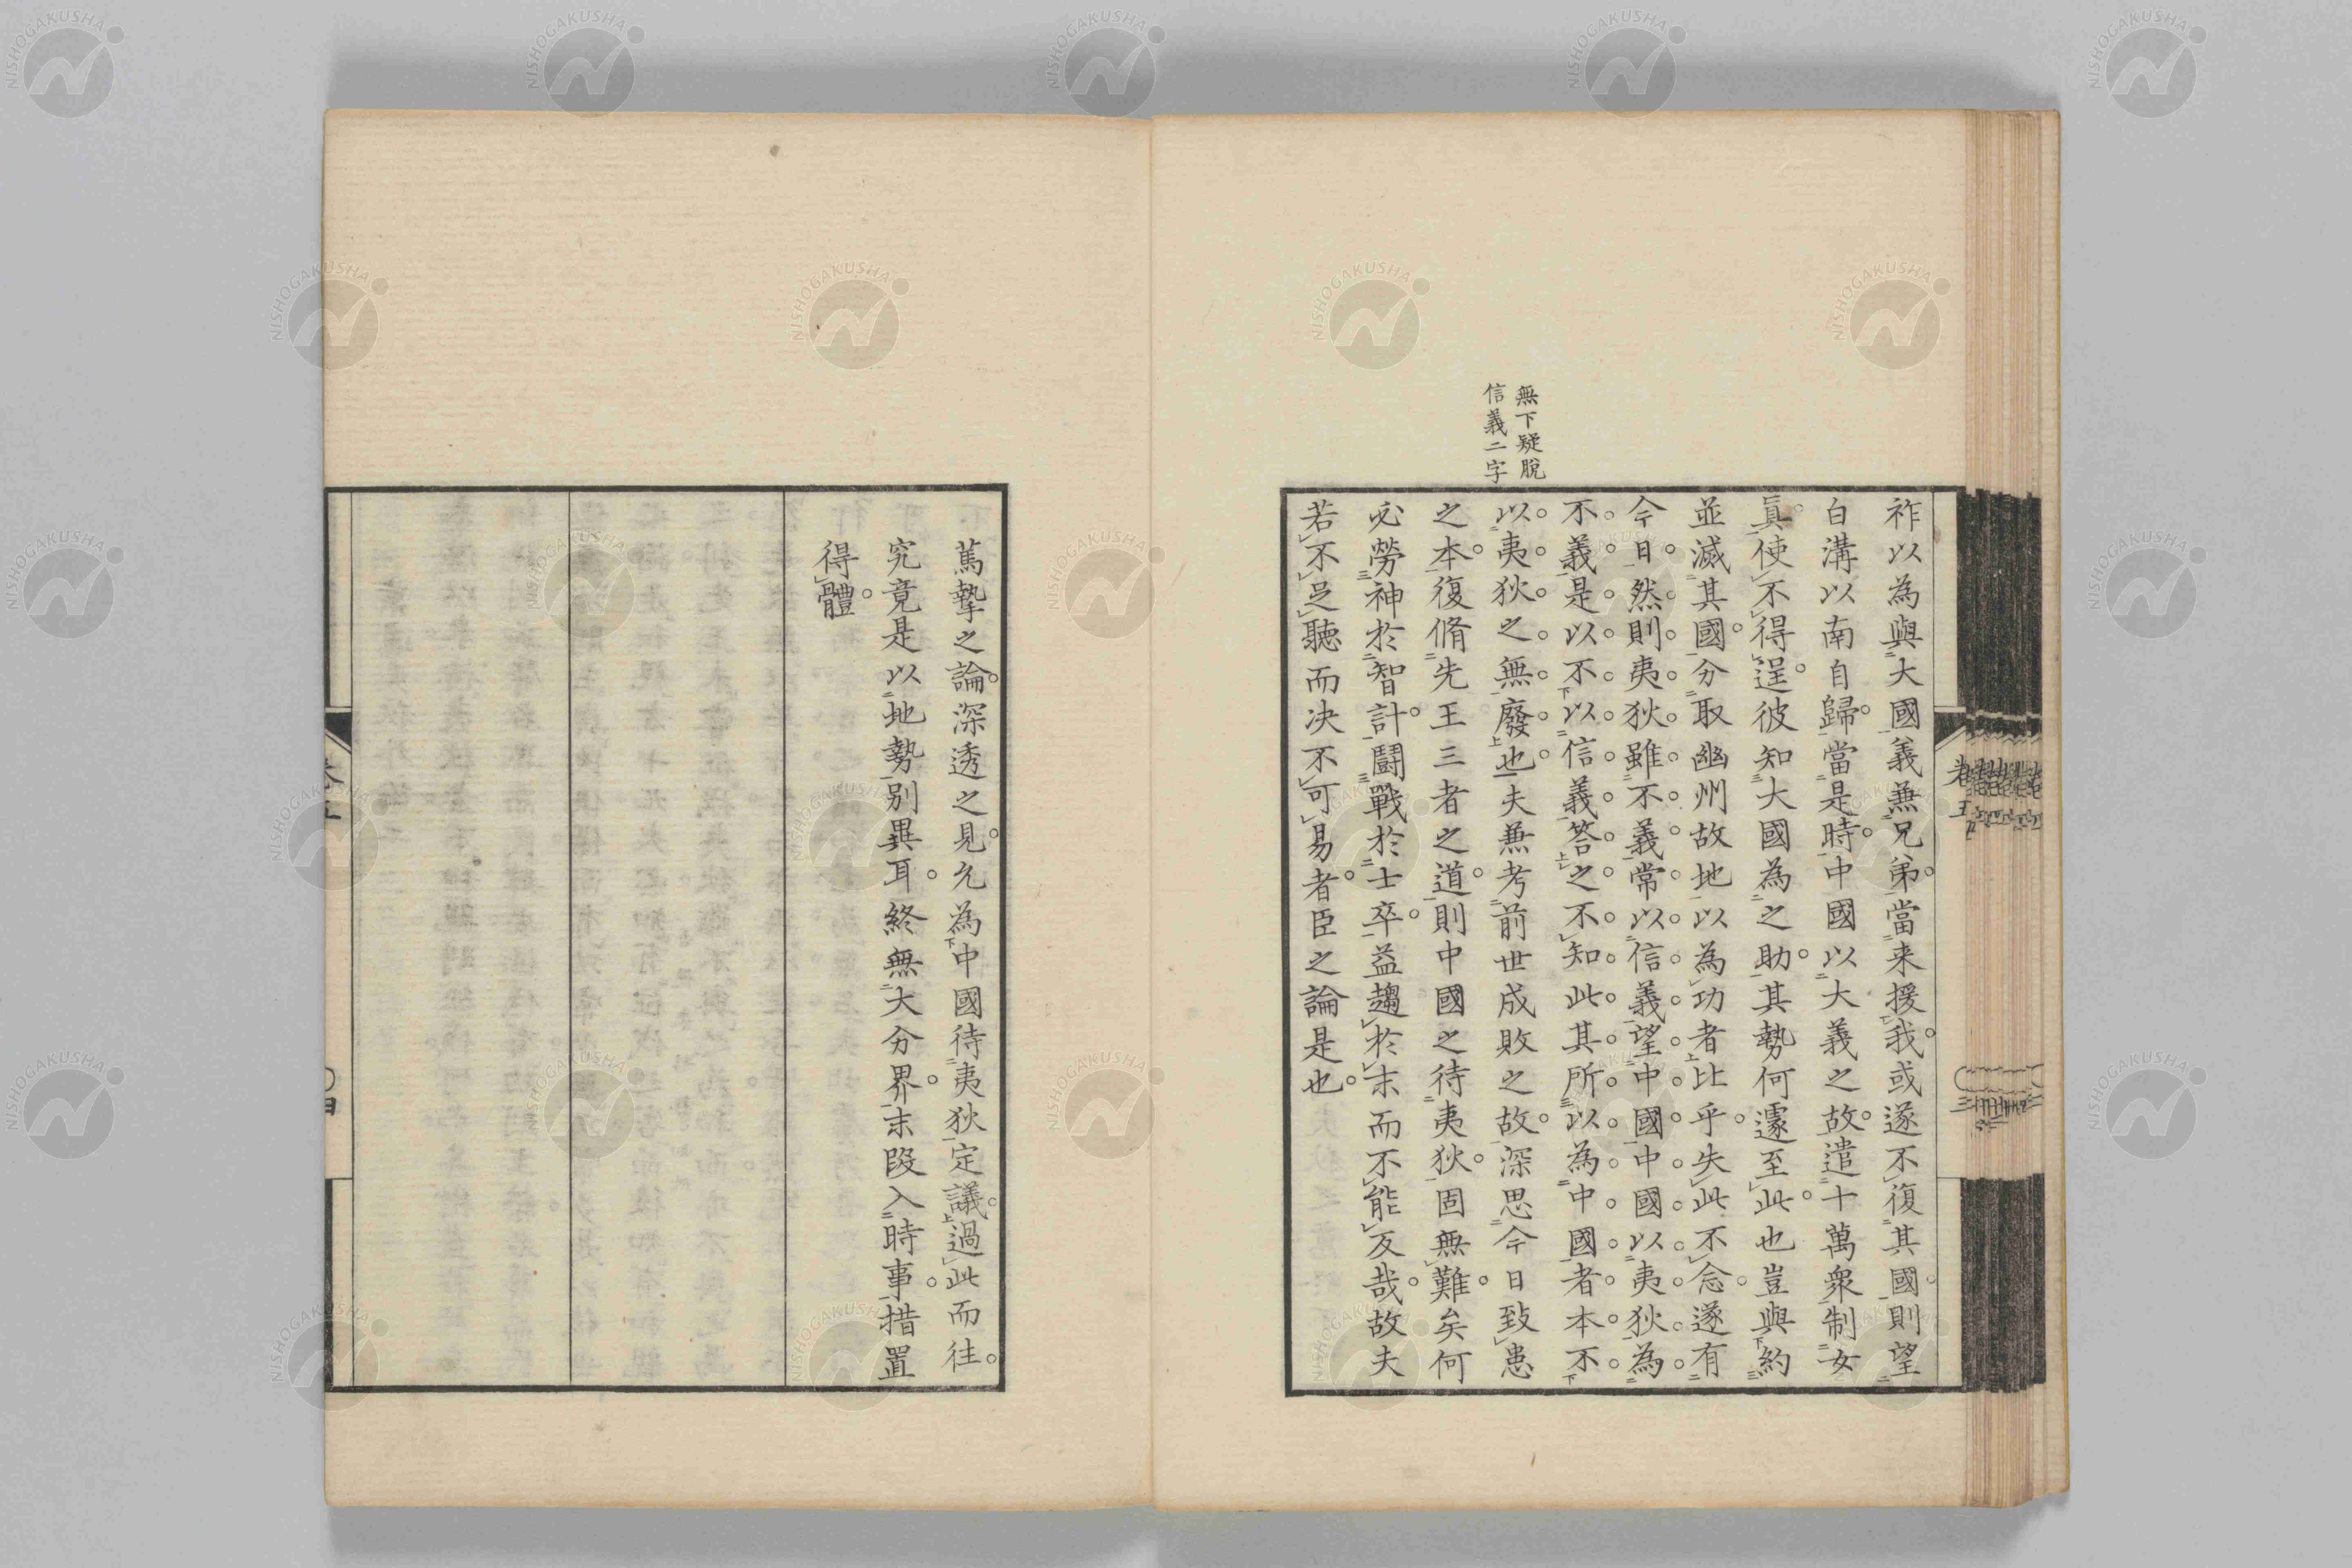 無下疑脫
信義二字
祚以為與大國義無兄弟當来援我或遂不復其國則望
白溝以南自歸當是時中國以大義之故遣十萬衆制女
真使不得逞彼知大國為之助其勢何遽至此也豈與約
並滅其國分取幽州故地以為功者比乎失此不念遂有
今日然則夷狄雖不義常以信義望中國中國以夷狄為
不義是以不以信義答之不知此其所以為中國者本不
以夷狄之無廢也夫無考前世成敗之故深思今日致患
之本復脩先王三者之道則中國之待夷狄固無難矣何
必勞神於智計鬪戰於士卒益趨於末而不能反哉故夫
若不足聽而决不可易者臣之論是也
篤摯之論深透之見允為中國待夷狄定議過此而往
究竟是以地勢別異耳終無大分界末段入時事措置
得體
卷五
NISHOGAKUSHA